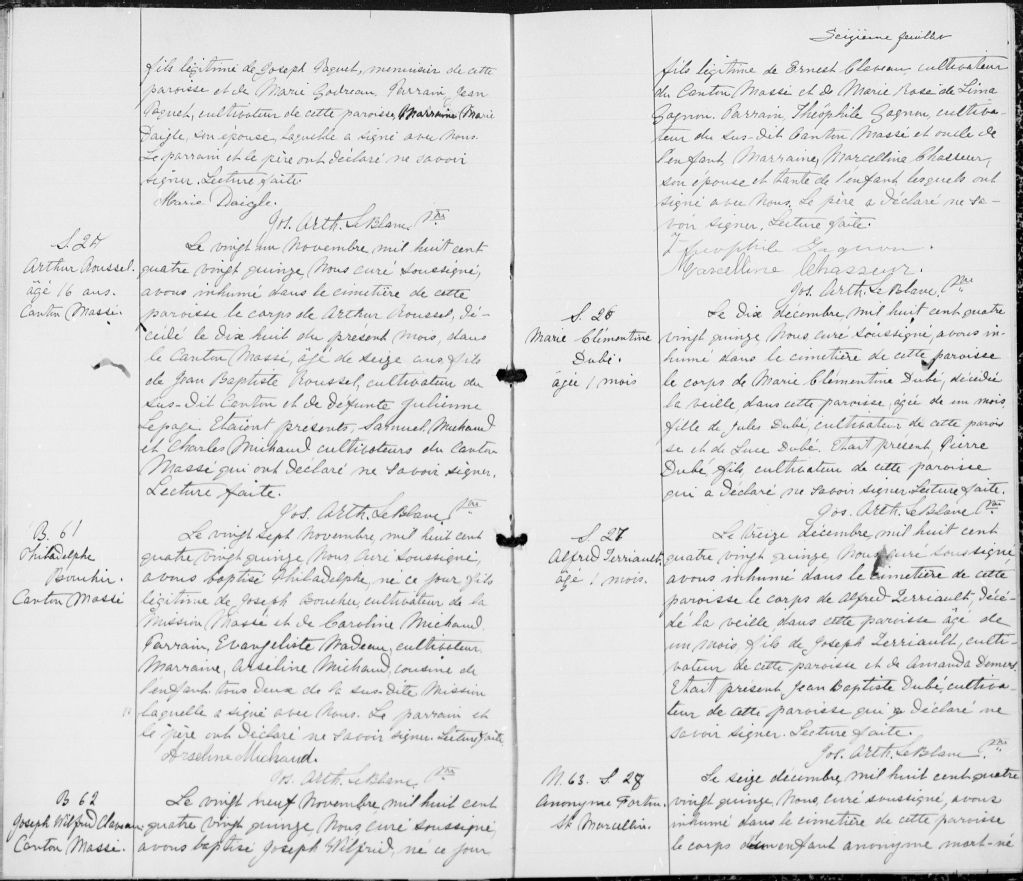 fils légitime de Joseph Paquet, menuisier de cette
paroisse et de Marie Godreau. Parrain, Jean
Paquet, cultivateur de cette paroisse, Marraine Marie
Daigle, son épouse, laquelle a signé avec Nous.
Le parrain et le père ont déclaré ne savoir
signer. Lecture faite.
Marie Daigle.
Jos. Arth. LeBlanc, Ptre
S. 25
Arthur Roussel.
âgé 16 ans.
Canton Massé.
Le vingt un Novembre, mil huit cent
quatre vingt quinze, Nous curé soussigné,
avons inhumé dans le cimetière de cette
paroisse le corps de Arthur Roussel, dé-
cédé le dix huit du présent mois, dans
le Canton Massé, âgé de seize ans, fils
de Jean Baptiste Roussel, cultivateur du
sus-dit Canton et de défunte Julienne
Lepage. Etaient présents, Samuel Michaud
et Charles Michaud cultivateurs du Canton
Massé qui ont déclaré ne savoir signer.
Lecture faite.
Jos. Arth. LeBlanc, Ptre
B. 61
Philadelphe
Boucher.
Canton Massé
Le vingt sept Novembre, mil huit cent
quatre vingt quinze, Nous, curé soussigné,
avons baptisé Philadelphe, né ce jour fils
légitime de Joseph Boucher, cultivateur de la
Mission Massé et de Caroline Michaud.
Parrain, Evangeliste Nadeau, cultivateur.
Marraine, Arseline Michaud, cousine de
l'enfant, tous deux de la sus-dite Mission
laquelle a signé avec Nous. Le parrain et
le père ont déclaré ne savoir signer. Lecture faite
Arseline Michaud.
Jos. Arth. LeBlanc Ptre
B 62
Joseph Wilfrid Claveau
Canton Massé.
Le vingt neuf Novembre, mil huit cent
quatre vingt quinze, Nous, curé soussigné,
avons baptisé Joseph Wilfrid, né ce jour
Seizième feuillet
fils légitime de Ernest Claveau, cultivateur
du Canton Massé et de Marie Rose de Lima
Gagnon. Parrain, Théophile Gagnon, cultiva-
teur du sus-dit Canton Massé et oncle de
l'enfant, Marraine, Marcelline Chasseur,
son épouse et tante de l'enfant lesquels ont
signé avec Nous. Le père a déclaré ne sa-
voir signer. Lecture faite.
Theophile Gagnon.
Marcelline Chasseur.
Jos. Arth. LeBlanc, Ptre
S. 26
Marie Clémentine
Dubé.
âgée 1 mois
Le dix décembre, mil huit cent quatre
vingt quinze, Nous curé soussigné, avons in-
humé dans le cimetière de cette paroisse
le corps de Marie Clémentine Dubé, décédée
la veille, dans cette paroisse, âgée de un mois,
fille de Jules Dubé, cultivateur de cette parois
se et de Luce Dubé. Etait présent, Pierre
Dubé, fils, cultivateur de cette paroisse
qui a déclaré ne savoir signer. Lecture faite.
Jos. Arth. LeBlanc Ptre
S. 27
Alfred Terriault,
âgé 1 mois.
Le treize Décembre, mil huit cent
quatre vingt quinze, Nous, curé soussigné
avons inhumé dans le cimetière de cette
paroisse le corps de Alfred Terriault, décé-
dé la veille dans cette paroisse âgé de
un mois, fils de Joseph Terriault, culti-
vateur de cette paroisse et de Amanda Demers.
Etait présent, Jean Baptiste Dubé, cultiva-
teur de cette paroisse qui a déclaré ne
savoir signer. Lecture faite.
Jos. Arth. LeBlanc Ptre
N. 63. S 28
Anonyme Fortin.
St Marcellin.
Le seize décembre, mil huit cent quatre
vingt quinze, Nous, curé soussigné, avons
inhumé dans le cimetière de cette paroisse
le corps d'un enfant anonyme mort-né